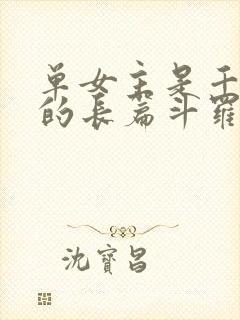 单女主是千
的长篇斗罗
沈寶昌